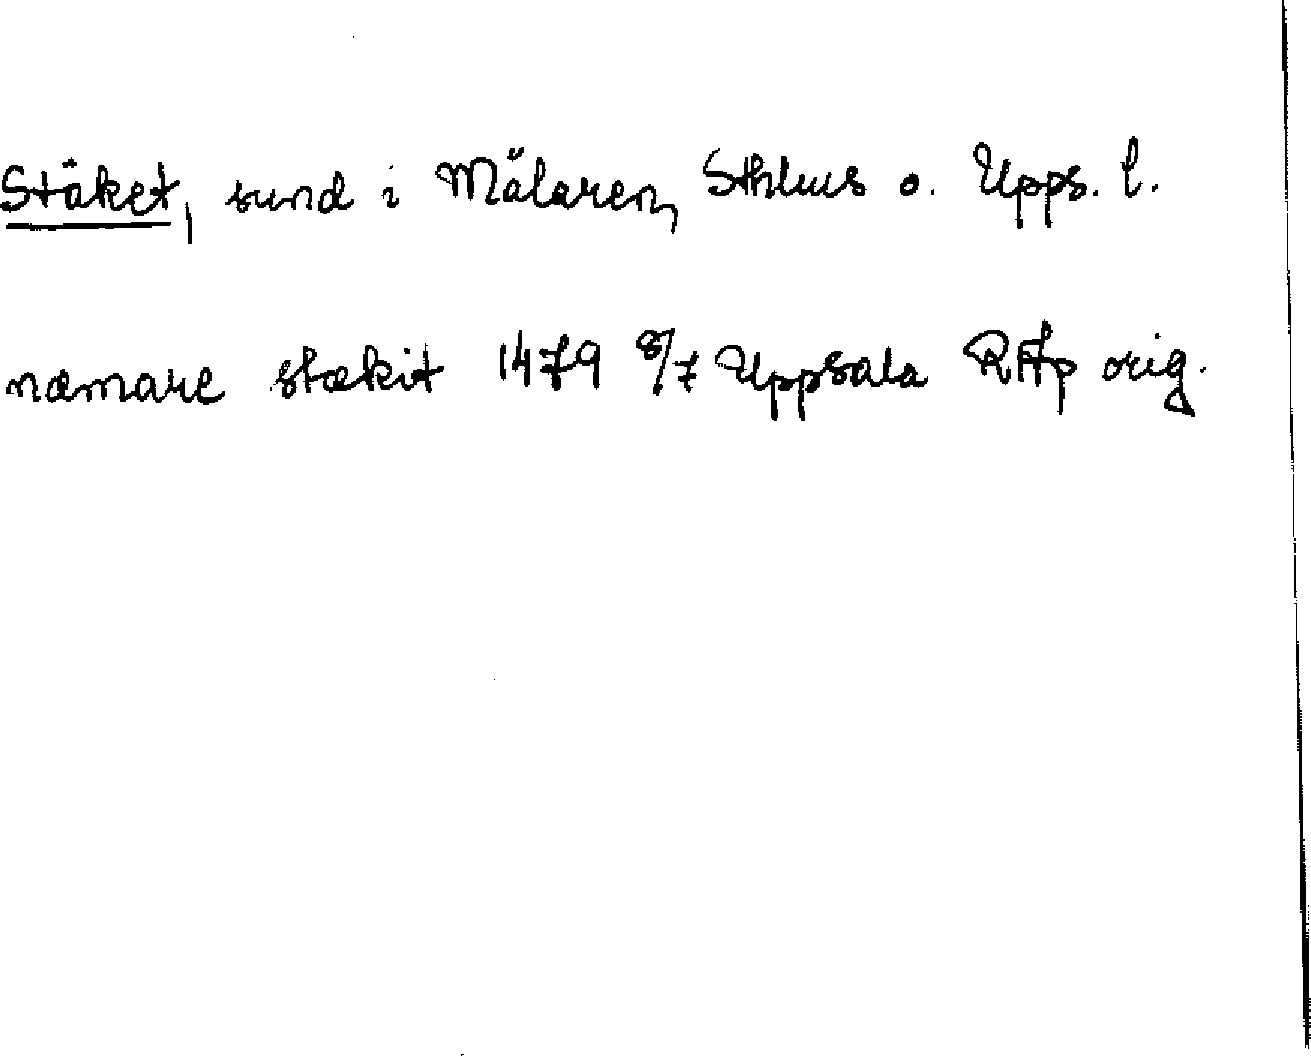 Stäket, sund i Mälaren, Sthlms o. Upps. l.
næmare stækit 1479 8/7 Uppsala RAp orig.